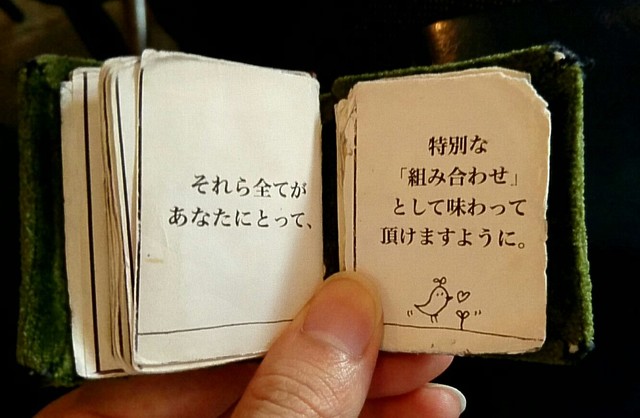 それら全てが
あなたにとって、
特別な
「組み合わせ」
として味わって
頂けますように。